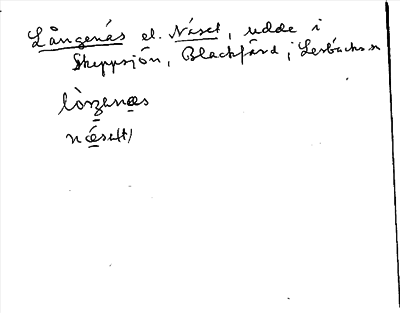 Långenäs el. Näset, udde i
Skeppsjön, Blackfärd, i Lerbäcks sn
lòŋɡenæs
næ̀set